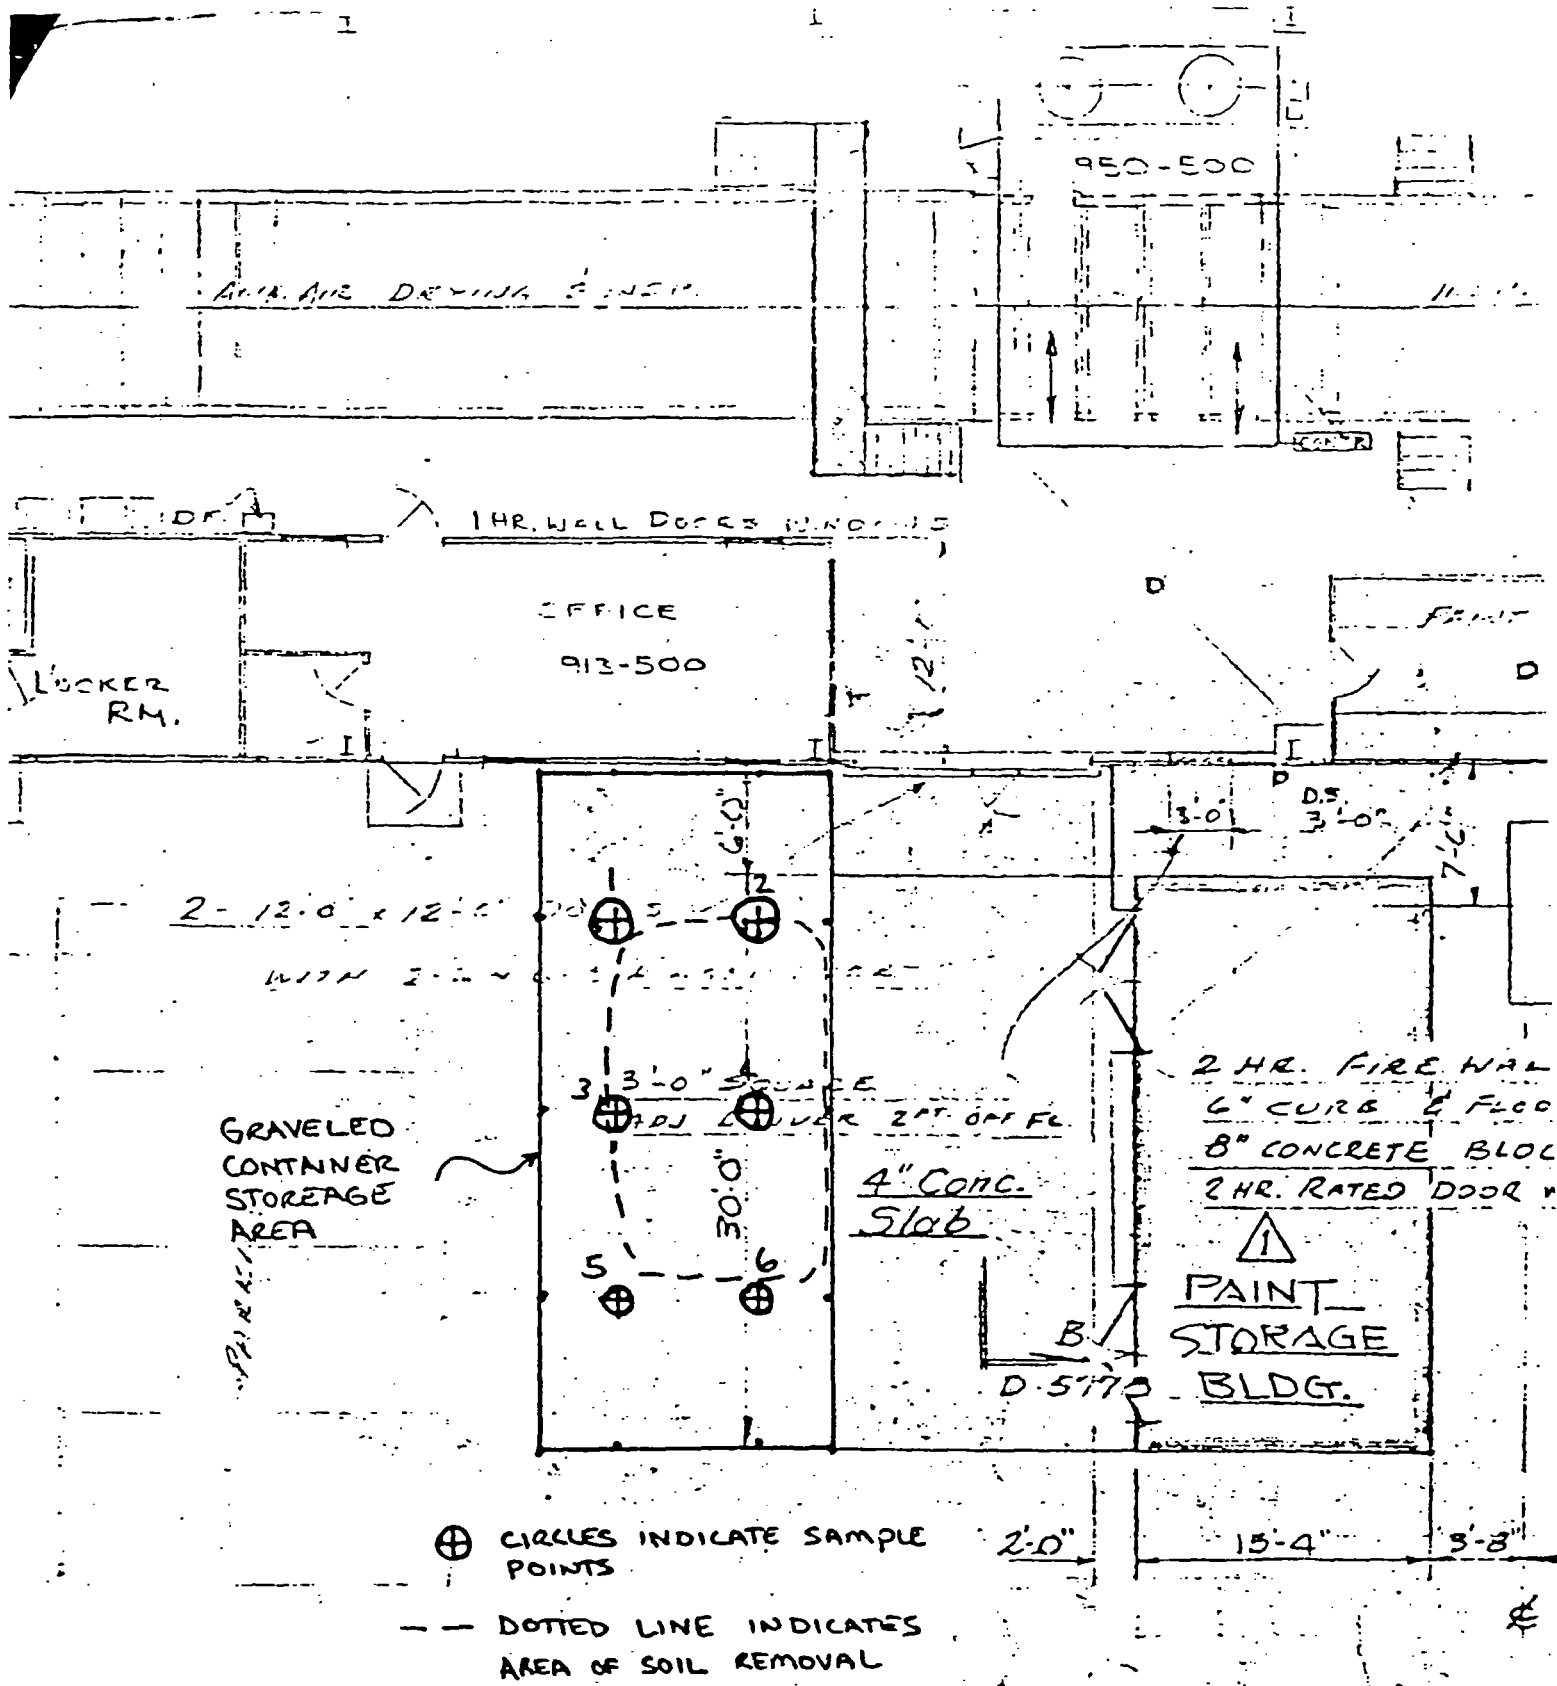 950-500
DRYING
CONTR
D.F.
1 HR. WALL DOORS WINDOWS
OFFICE
913-500
12'
D
D
LOCKER
RM.
I
I
I
6'-0"
3'-0"
D.S.
3'-0"
7'-6"
2
2 - 12'-0" x 12'-0"
WITH
3
3'-0" SQUARE
ADJ LOUVER 2 FT OFF FL
GRAVELED
CONTAINER
STOREAGE
AREA
30'-0"
4" Conc.
Slab
2 HR. FIRE WAL
6" CURB & FLOO
8" CONCRETE BLOC
2 HR. RATED DOOR
1
PAINT
STORAGE
BLDG.
5
6
B
D-5773
⊕ CIRCLES INDICATE SAMPLE
POINTS
2'-0"
15'-4"
3'-8"
-- DOTTED LINE INDICATES
AREA OF SOIL REMOVAL